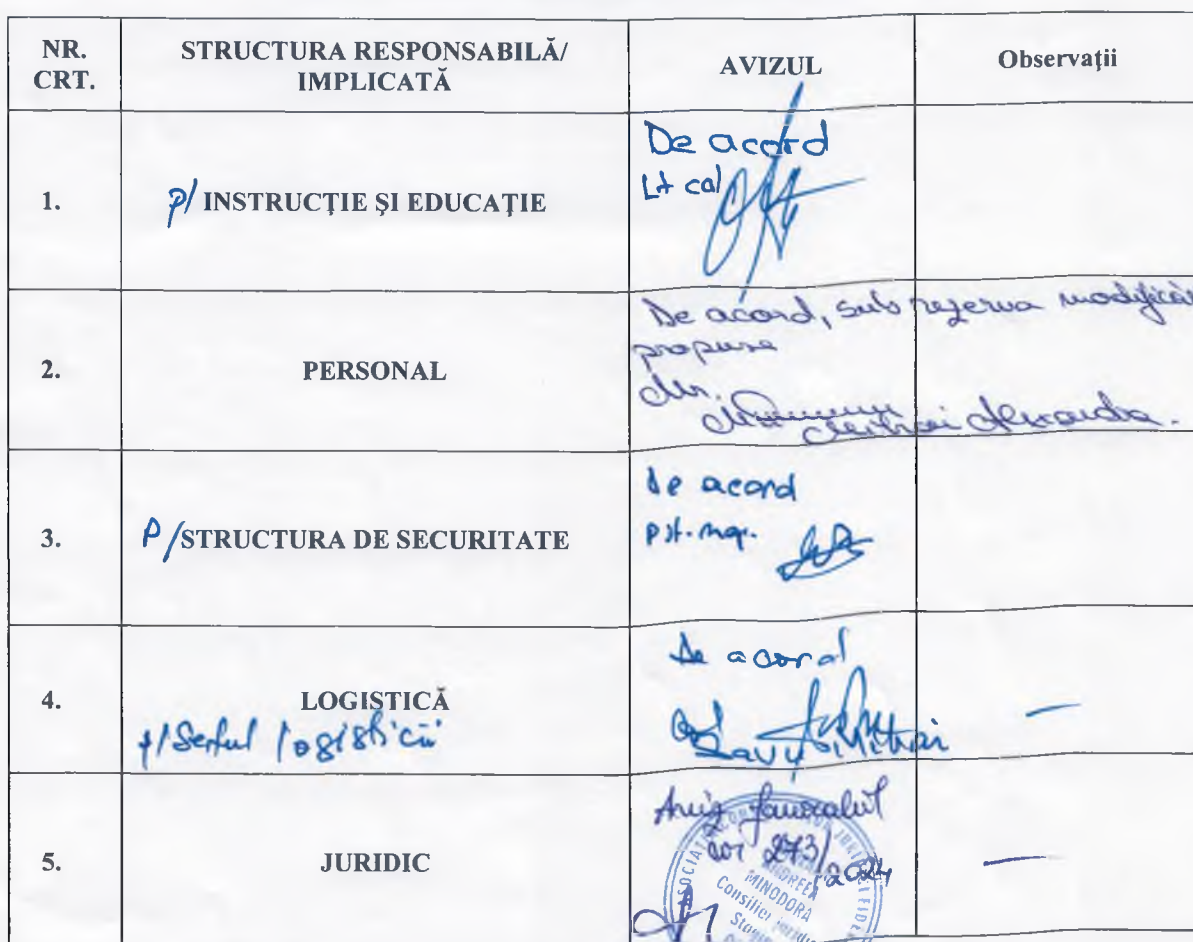 NR. CRT.
STRUCTURA RESPONSABILĂ/ IMPLICATĂ
AVIZUL
Observații
1.
p/ INSTRUCȚIE ȘI EDUCAȚIE
De acord
Lt col
2.
PERSONAL
De acord, sub rezerva modificări
propuse
Alexandra.
3.
P/STRUCTURA DE SECURITATE
De acord
4.
LOGISTICĂ
p/Șeful logisticii
De acord
–
5.
JURIDIC
Aviz favorabil
273/
2024
MINODORA
Consilier juridic
—